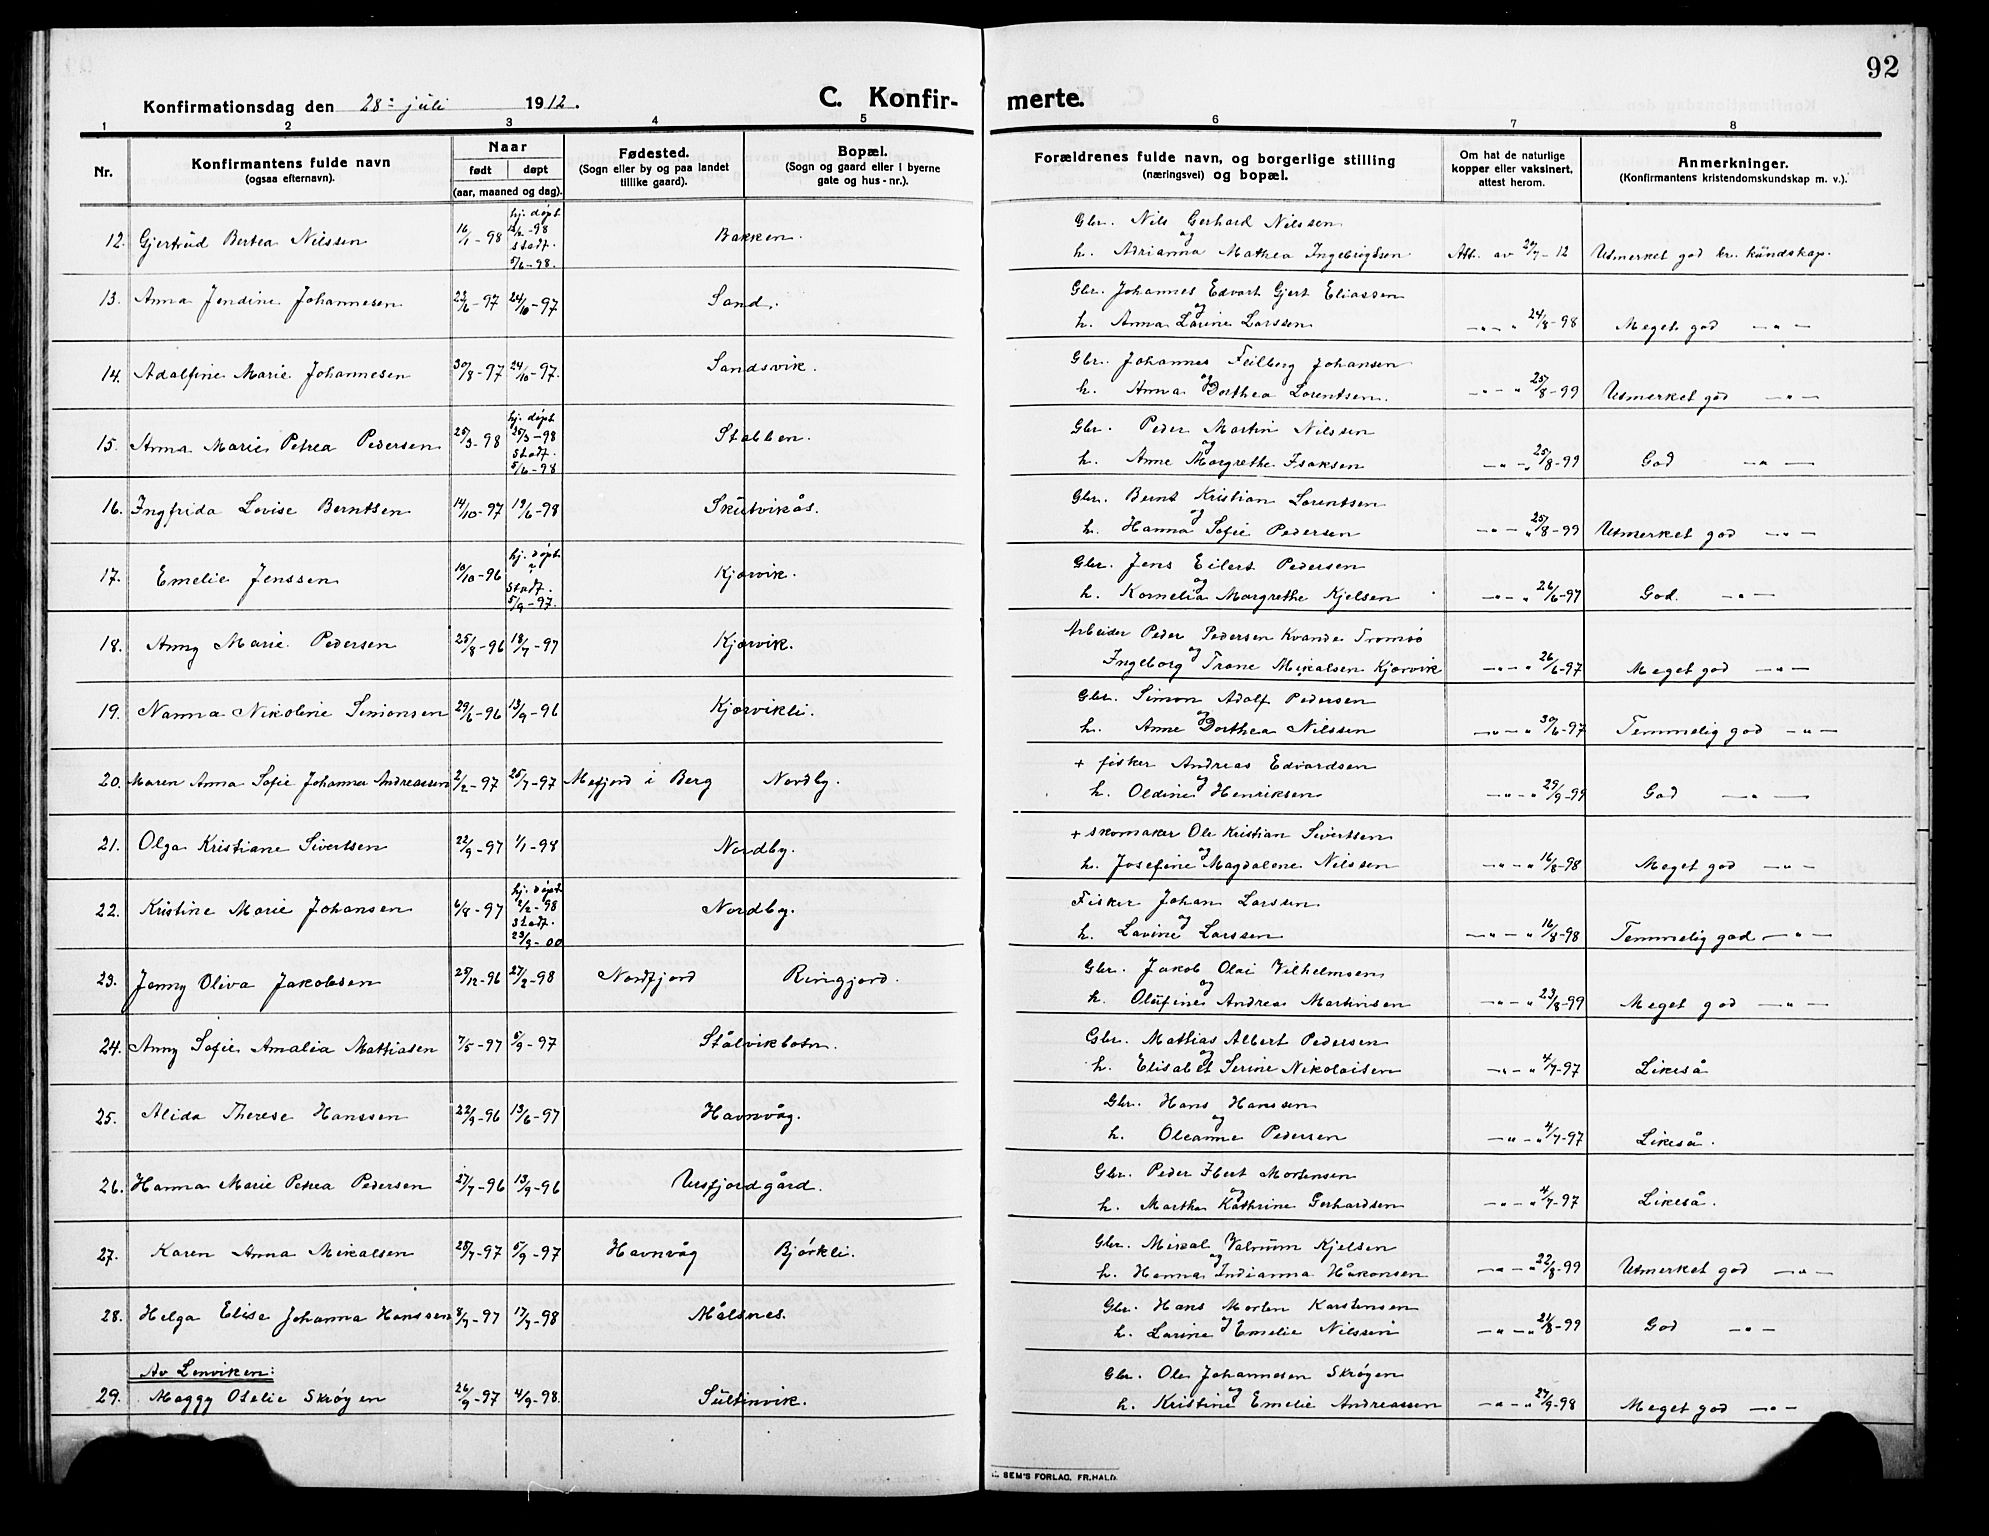 92
Konfirmationsdag den 28 juli 1912.
C. Konfir-
merte.
1 2 3 4 5 6 7 8
Nr.
Konfirmantens fulde navn
(ogsaa efternavn).
Naar
født døpt
(aar, maaned og dag).
Fødested.
(Sogn eller by og paa landet
tillike gaard).
Bopæl.
(Sogn og gaard eller i byerne
gate og hus-nr.).
Forældrenes fulde navn, og borgerlige stilling
(næringsvei) og bopæl.
Om hat de naturlige
kopper eller vaksinert,
attest herom.
Anmerkninger.
(Konfirmantens kristendomskundskap m. v.).
hj. døpt
12. Gjertrud Bertea Nilssen 16/1-98 -98 Bakken. Gbr. Nils Gerhard Nilssen
stadf. og
5/6-98. h. Adrianna Mathea Ingebrigtsen Att. av 24/7-12 Utmerket god kr. kundskap.
13. Anna Jendine Johannesen 23/6-97 24/10-97 Sand. Gbr. Johannes Edvart Gjert Eliassen
og
h. Anna Lovine Larssen -"-" 24/8-98 Meget god -"-
14. Adolfine Marie Johannesen 30/8-97 24/10-97. Sandsvik. Gbr. Johannes Feilberg Johansen
og
h. Anna Dorthea Lorentsen. -"-" 25/8-99 Utmerket god -"-
hj. døpt
15. Anna Marie Petrea Pedersen 25/3-98 25/3-98 Stobben. Gbr. Peder Martin Nilssen
stadf. og
5/6-98 h. Anne Margrethe Isaksen -"-" 25/8-99 God -"-
16. Ingfrida Lovise Berntsen 14/10-97 19/6-98 Skutvikås. Gbr. Bernt Kristian Lorentsen
og
h. Hanna Sofie Pedersen -"-" 25/8-99 Utmerket god -"-
hj. døpt
17. Emelie Jenssen 10/10-96 Kjærvik. Gbr. Jens Eilert Pedersen
Stadf. og
5/9-97. h. Kornelia Margrethe Kjelsen -"-" 26/6-97 God. -"-
18. Anny Marie Pedersen 25/8-96 18/7-97 Kjærvik. Arbeider Peder Pedersen Kvande Tromsø
og
Ingeborg Trane Mikalsen Kjærvik -"-" 26/6-97 Meget god -"-
19. Nanna Nikoline Simonsen 29/6-96 13/9-96 Kjærvikli. Gbr. Simon Adolf Pedersen
og
h. Anne Dorthea Nilssen -"-" 30/6-97 Temmelig god -"-
20. Maren Anna Sofie Johanna Andreassen 2/2-97 25/7-97 Mefjord i Berg Nordby. + fisker Andreas Edvardsen
og
h. Oldine Henriksen -"-" 29/9-99 God -"-
21. Olga Kristiane Sivertsen 22/9-97 1/1-98 Nordby. + skomaker Ole Kristian Sivertsen
og
h. Josefine Magdalene Nilssen -"-" 16/8-98 Meget god -"-
hj. døpt
22. Kristine Marie Johansen 6/8-97 2/2-98 Nordby. Fisker Johan Larssen
Stadf. og
23/9-00 h. Lovine Larssen -"-" 16/8-98 Temmelig god -"-
23. Jenny Oliva Jakobsen 25/12-96 27/2-98 Nordfjord Rinfjord. Gbr. Jakob Olai Vilhelmsen
og
h. Olufine Andrea Martinsen -"-" 23/8-99 Meget god -"-
24. Anny Sofie Amalia Mattiasen 7/5-97 5/9-97 Stålvikbotn. Gbr. Mathias Albert Pedersen
og
h. Elisabet Serine Nikolaisen -"-" 4/7-97 Likeså
25. Alida Therese Hanssen 22/9-96 13/6-97 Havnvåg. Gbr. Hans Hanssen
og
h. Oleanne Pedersen -"-" 4/7-97 Likeså.
26. Hanna Marie Petrea Pedersen 27/7-96 13/9-96 Ursfjordgård. Gbr. Peder Hert Mortensen
og
h. Martha Kathrine Gerhardsen -"-" 4/7-97 Likeså.
27. Karen Anna Mikalsen 25/7-97 5/9-97 Havnvåg Bjørkli. Gbr. Mikal Valnum Kjelsen
og
h. Hanna Indianna Håkonsen -"-" 22/8-99 Utmerket god -"-
28. Helga Elise Johanna Hanssen 8/7-97 17/7-98 Målsnes. Gbr. Hans Morten Karstensen
og
h. Lorine Emelie Nilssen -"-" 21/8-99 God -"-
Av Lenviken:
29. Maggy Otelie Skrøgen 26/9-97 4/9-98. Sultinvik. Gbr. Ole Johannesen Skrøgen
og
h. Kristine Emelie Andreassen -"-" 27/9-98 Meget god -"-
SEM'S FORLAG, FR.HALD.